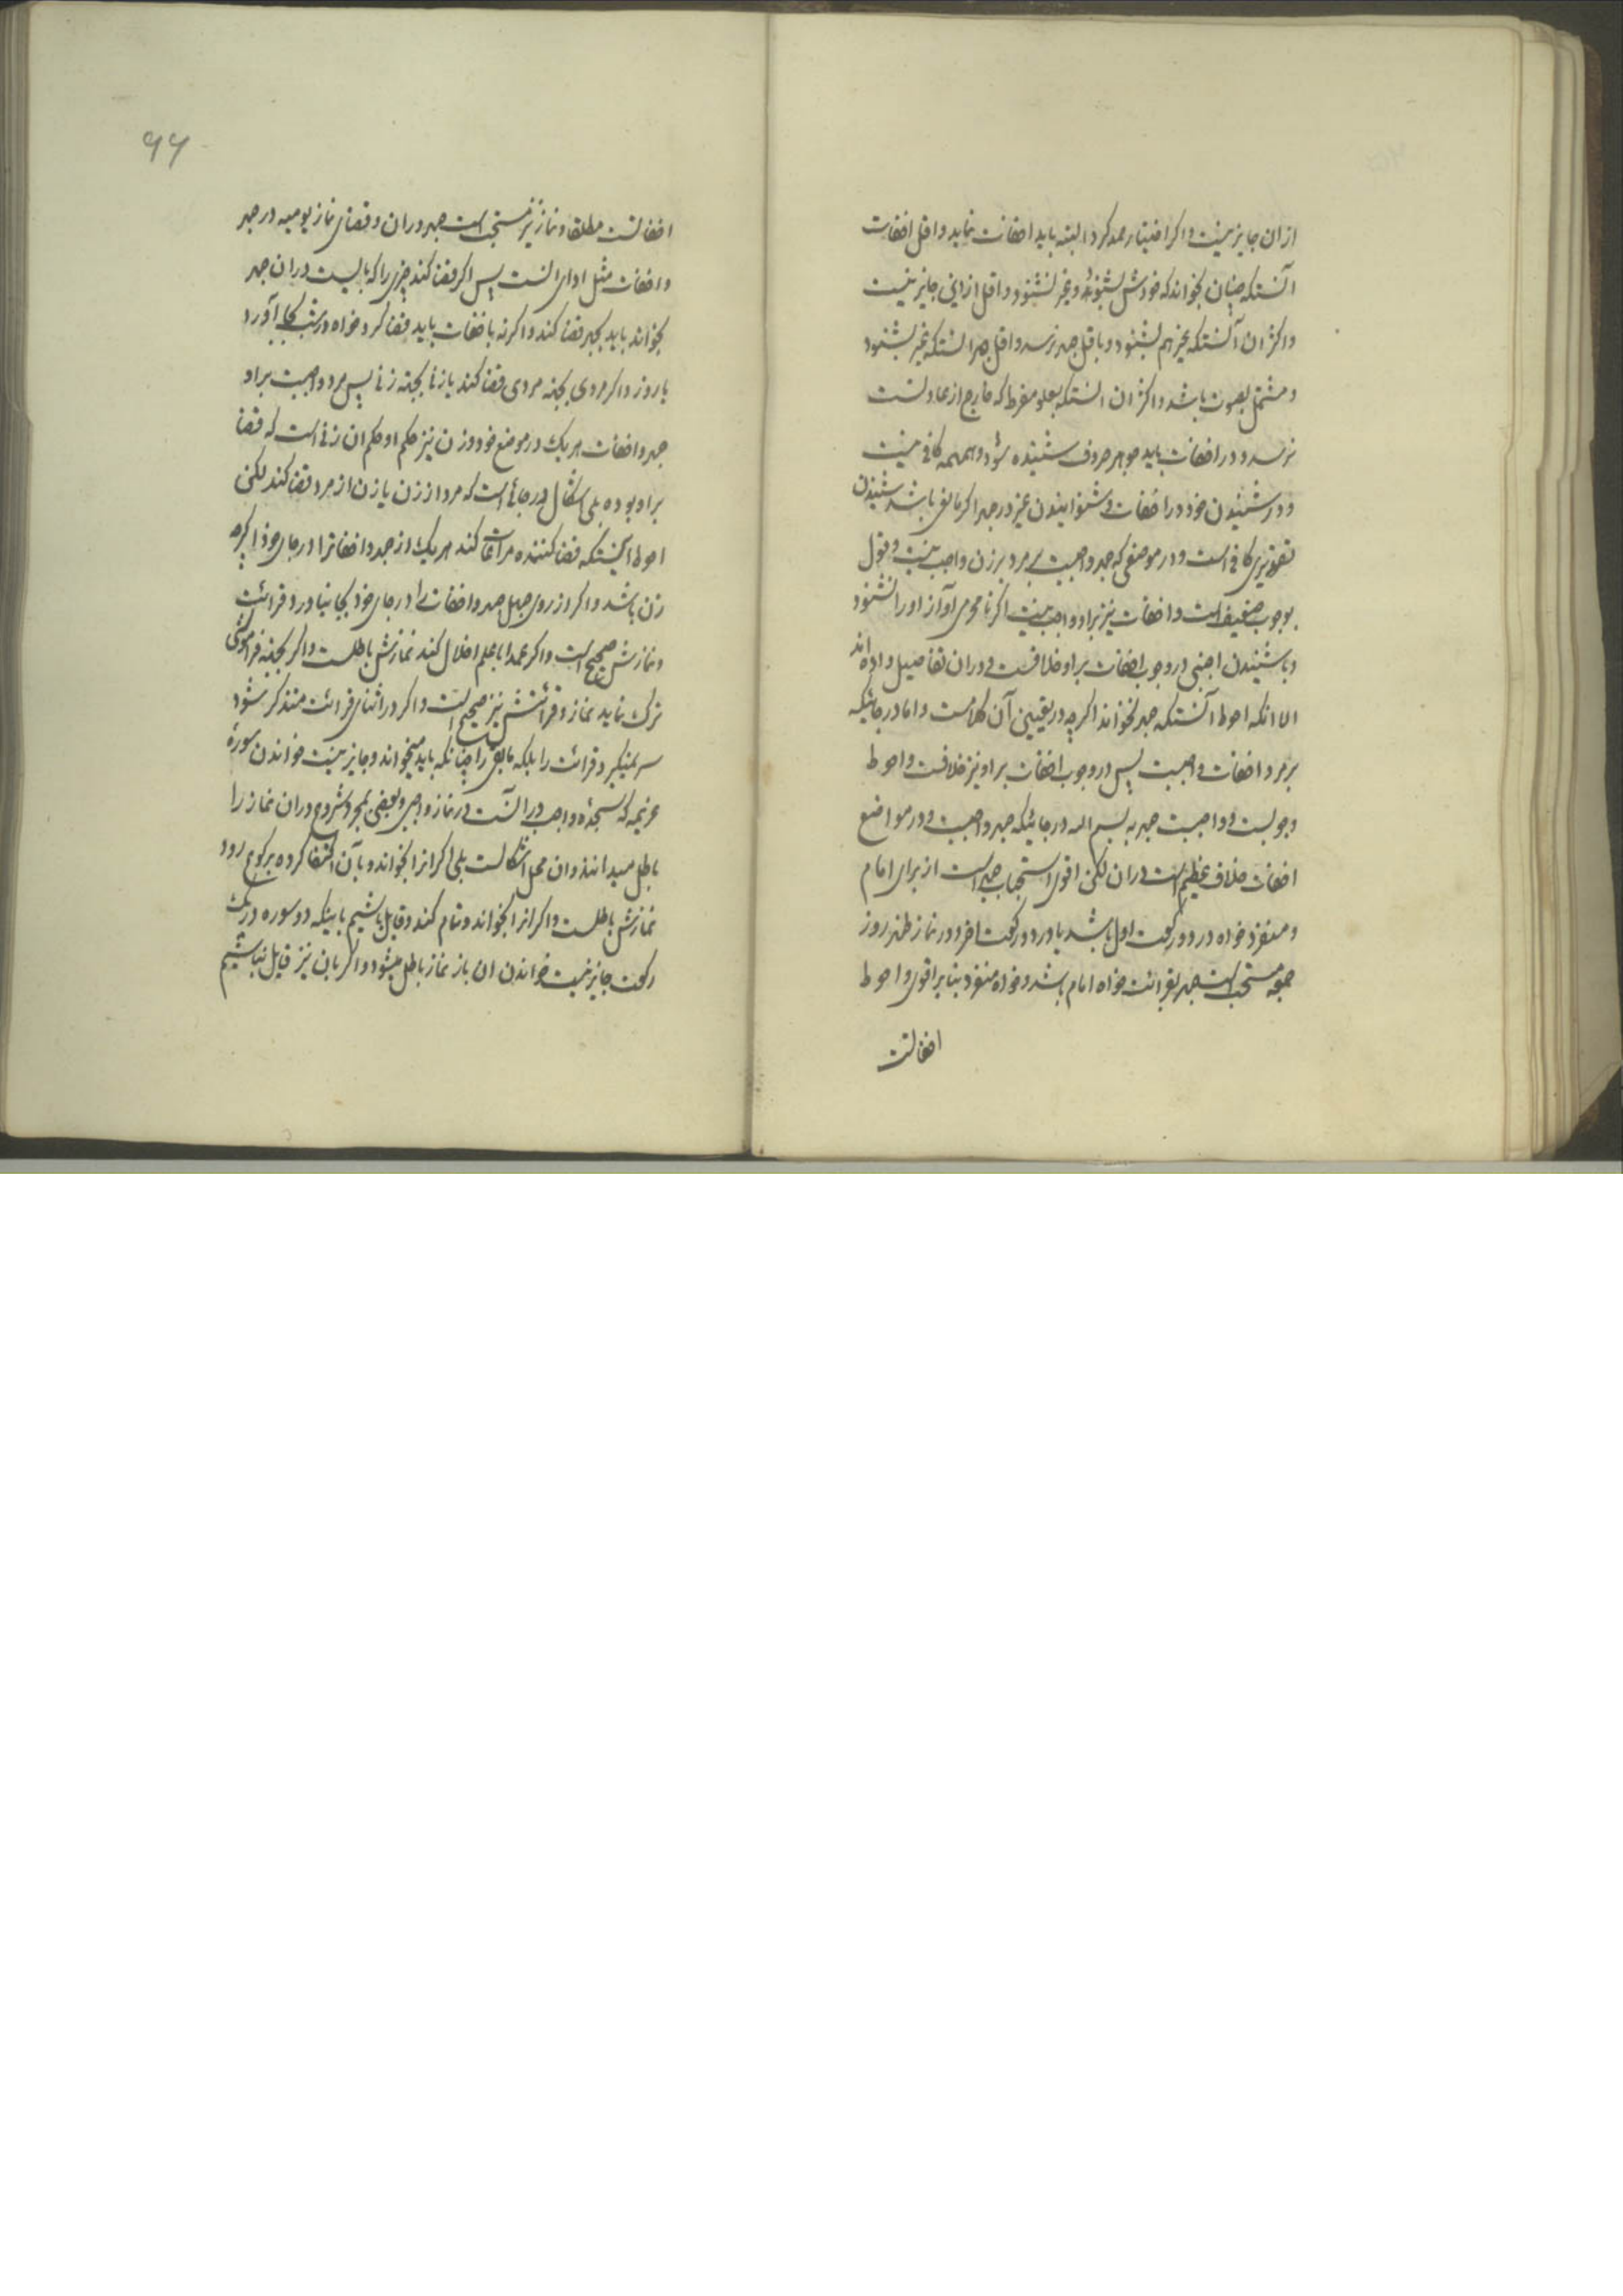 ازان جایز نیست و اکر اختیار حمد کرد البته باید اخفات نماید و اقل اخفات
آنستکه چنان بخواند که خودش بشنود و غیر نشنود و اقل ازاین جایز نیست
و اکثر ان آنستکه غیر هم بشنود و باقل جهر نرسد و اقل جهر انستکه غیر بشنود
و مشتمل بصوت باشد و اکثر ان انستکه بعلو مفرط که خارج از عادتست
نرسد و در اخفات باید جوهر حروف شنیده شود و همهمه کافی نیست
و در شنیدن خود در اخفات و شنوانیدن غیر در جهر اکر مانعی باشد شنیدن
تقدیری کافی است و در موضعی که جهر واجبست بر مرد بر زن واجب نیست و قول
بوجوب ضعیف است و اخفات نیز بر او واجب نیست اکر نامحرمی آواز او را نشنود
و با شنیدن اجنبی در وجوب اخفات بر او خلافست و دران تفاصیل داده اند
الا انکه احوط آنستکه جهر نخواند اکرچه در تعیین آن کلامست و اما در جائیکه
بر مرد اخفات واجبست پس در وجوب اخفات بر او نیز خلافست و احوط
وجوبست و واجبست جهر به بسم الله در جائیکه جهر واجبست و در مواضع
اخفات خلاف عظیم است دران لکن اقوی استحباب جهر است از برای امام
و منفرد خواه در دو رکعت اول باشد یا در دو رکعت اخر و در نماز ظهر روز
جمعه مستحب است جهر بقرائت خواه امام باشد و خواه منفرد بنا بر اقوی و احوط
اخفاتست
۹۹
اخفاتست مطلقا و نماز نیز مستحب است جهر دران و قضای نماز یومیه در جهر
و اخفات مثل ادای انست پس اکر قضا کند چیزی را که بایست دران جهر
بخواند باید بجهر قضا کند و اکر نه باخفات باید قضا کرد خواه در شب بجا آورد
یا روز و اکر مردی بجهة مردی قضا کند یا زنی بجهة زنی پس مرد واجبست بر او
جهر و اخفات هر یک در موضع خود و زن نیز حکم او حکم ان زنی است که قضا
بر او بوده بلی اشکال در جائی است که مرد از زن یا زن از مرد قضا کند لکن
احوط اینستکه قضا کننده مراعات کند هر یک از جهر و اخفاترا در جای خود اکرچه
زن باشد و اکر از روی جهل جهر و اخفات را در جای خود بجا نیاورد قرائت
و نمازش صحیح است و اکر عمدا با علم اخلال کند نمازش باطلست و اکر بجهة فراموشی
ترک نماید نماز و قرائتش نیز صحیح است و اکر در اثنای قرائت متذکر شود
سر نمیکیرد قرائت را بلکه مابقی را چنانکه باید میخواند و جایز نیست خواندن سوره
عزیمه که سجده واجب در انست در نماز واجبی و بعضی بمجرد شروع دران نماز را
باطل میدانند و ان محل اشکالست بلی اکر انرا بخواند و بآن اکتفا کرده برکوع رود
نمازش باطلست و اکر انرا بخواند و تمام کند و قایل باشیم باینکه دو سوره در یک
رکعت جایز نیست خواندن ان باز نماز باطل میشود و اکر بان نیز قایل نباشیم